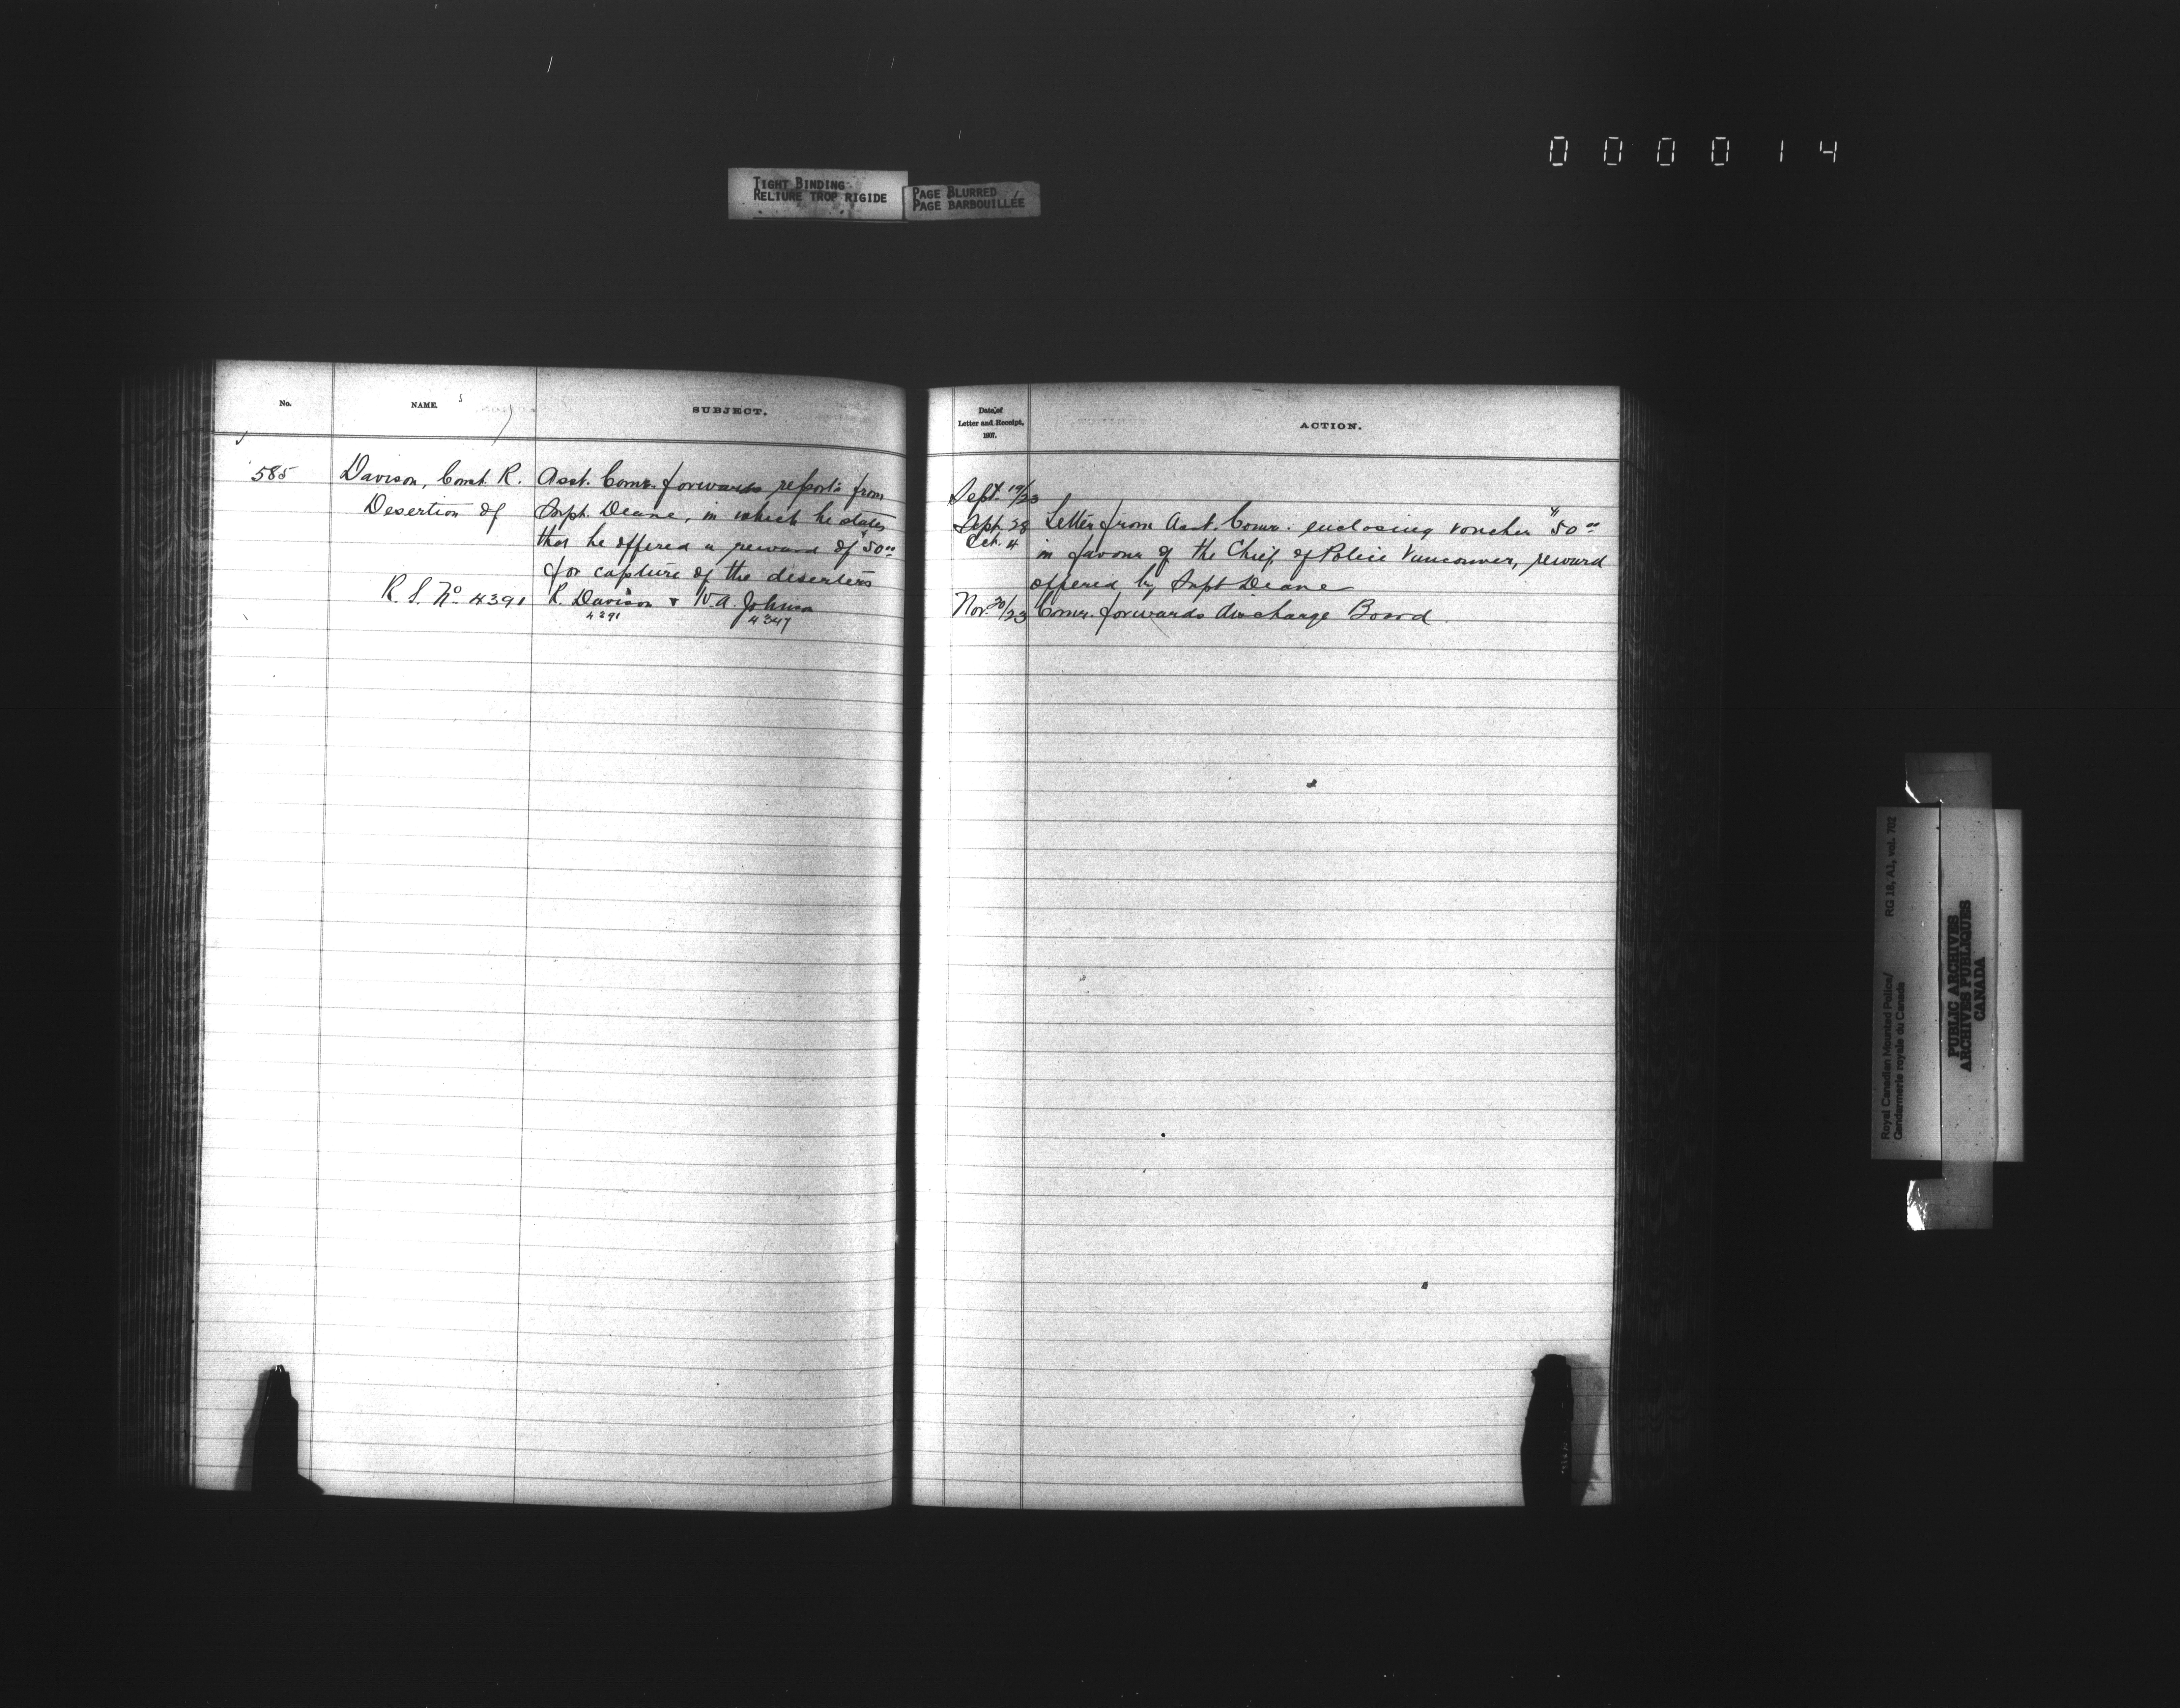 0 0 0 0 1 4
TIGHT BINDING
RELIURE TROP RIGIDE
PAGE BLURRED
PAGE BARBOUILLÉE
No.
NAME.
SUBJECT.
585
Davison, Const. R.
Desertion of
R. S. No 4391
Asst. Comr. forwards reports from
Supt. Deane, in which he states
that he offered a reward of $50.00
for capture of the deserters
R. Davison & W. A. Johnson
4391 4347
Date of
Letter and Receipt,
1907.
ACTION.
Sept. 19/23
Sept. 28 Letter from Asst. Comr. enclosing voucher $50.00
Oct. 4 in favour of the Chief of Police Vancouver, reward
offered by Supt Deane
Nov. 20/23 Comr. forwards discharge Board.
Royal Canadian Mounted Police/ RG 18, A1, vol. 702
Gendarmerie royale du Canada
PUBLIC ARCHIVES
ARCHIVES PUBLIQUES
CANADA